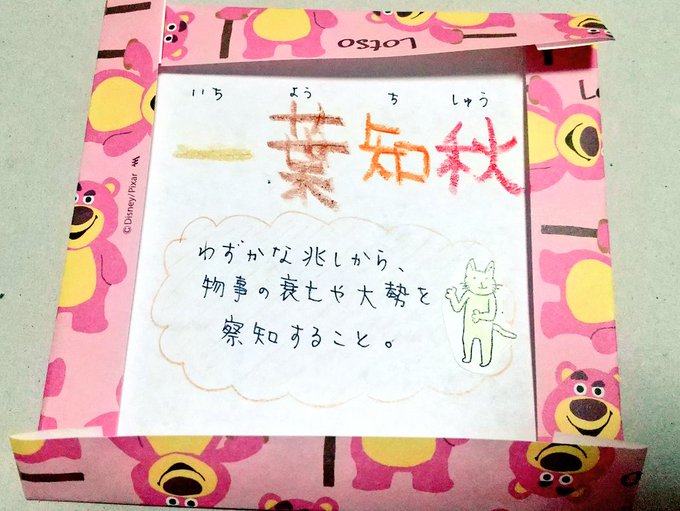 Lotso
いち よう ち しゅう
一葉知秋
わずかな兆しから、
物事の衰亡や大勢を
察知すること。
© Disney/Pixar